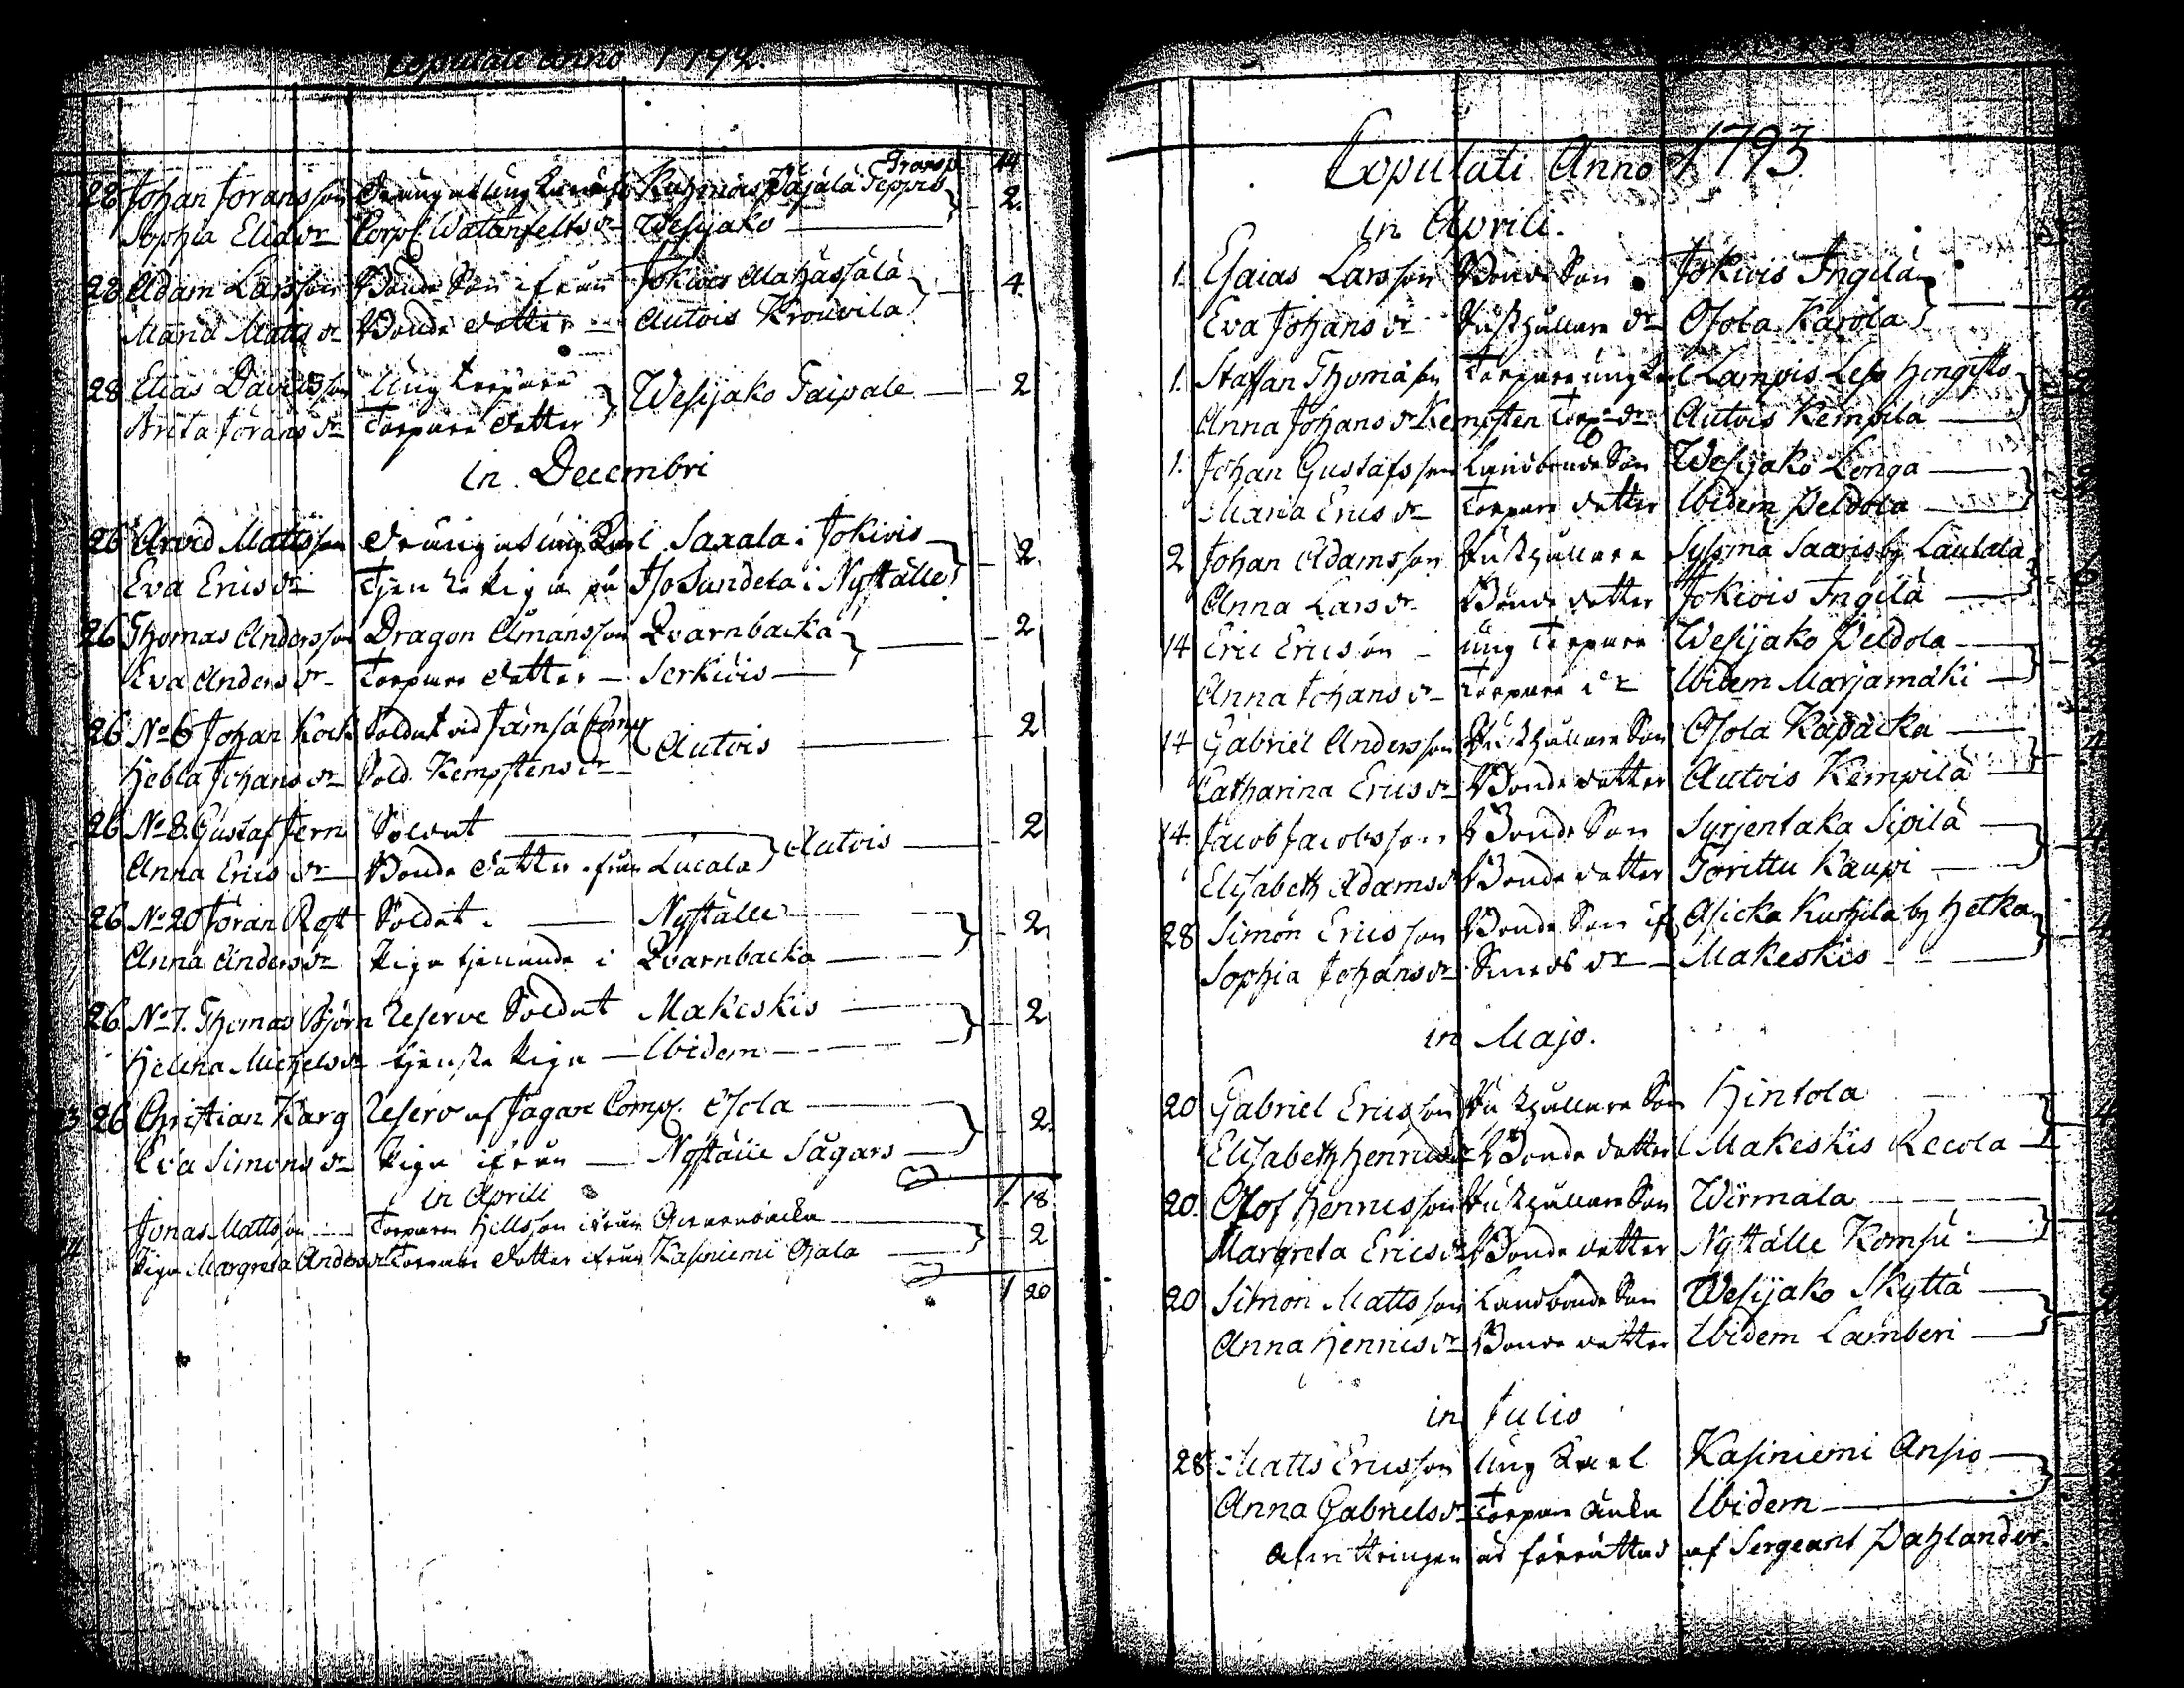 Copulati Anno 1792.
Transp. 14
28 Johan Jöransson Dräng Kuhmois Päjälä Seppis 2.
Sophia Eliædr Corpl Watanfeltsdr Wesijako
28 Adam Larsson Bonde Son ifrån Jokiois Alahässälä 4
Maria Mattsdr Bonde dotter Autois Krouvila
28 Elias Davidsson Ung torpare Wesijako Taipale 2
Brita Jöransdr Torpare dotter
in Decembri
26 Arvid Mattsson dräng ung Karl Saxala i Jokiois 2.
Eva Ericsdr Tjenste Piga på Iso Sundela i Nyställe
26 Thomas Andersson Dragon Amansson Qvarnbacka 2
Eva Andersdr Torpare dotter Serkiois
26 No 6 Johan Kock Soldat vid Jämsä Comp Autois 2
Hebla Johansdr Sold. Kempstens dr
26 No 8. Gustaf Jern Soldat Autois 2
Anna Ericsdr Bonde dotter ifrån Lucala
26 No 20 Jöran Rost Soldat Nyställe 2
Anna Andersdr Piga tjenande i Qvarnbacka
26 No 7. Thomas Björn Reserve Soldat Makeskis 2
Helena Michelsdr tjenste Piga Ibidem
3 26 Christian Karg Reserv af Jägare Comp. Osola 2.
Eva Simonsdr Piga ifrån Nyställe Sågars
1. 18
in Aprili
Jonas Mattson Torparen Hellsson ifrån Qvarnbacka 2
14 Piga Margreta Andersdr Torpare dotter ifrån Kasiniemi Ojala
1 20
Copulati Anno 1793
in Aprili.
1. Esaias Larsson Bonde Son Jokiois Ingilä
Eva Johansdr Rusthållare dr Osola Karola
1. Staffan Thomäson Torpare ung Karl Lampis Leso Hengisto
Anna Johansdr Kempsten Torp. dr Autois Kempila
1. Johan Gustafsson Landbonde Son Wesijako Longa
Maria Ericsdr Torpare dotter Ibidem Peldola
2 Johan Adamsson Rusthållare Sysmä Saarisby Lautala
Anna Larsdr Bonde dotter Jokiois Ingilä
14 Eric Ericsson ung Torpare Wesijako Peldola
Anna Johansdr Torpare dr Ibidem Marjamäki
14 Gabriel Andersson Rusthållare Son Osola Käpäcka
Catharina Ericsdr Bonde dotter Autois Kempilä
14. Jacob Jacobsson Bonde Son Syrjentaka Sipilä
Elisabeth Adamsdr Bonde dotter Torittu Kaupi
28 Simon Ericsson Bonde Son if. Asicka Kurhila by Hetka
Sophia Johansdr Smeds dr Makeskis
in Majo.
20 Gabriel Ericsson Rusthållare Son Hintola
Elisabeth Henricsdr Bonde dotter Makeskis Recola
20. Olof Henricsson Rusthållare Son Wirmala
Margreta Ericsdr Bonde dotter Nyställe Komsu
20 Simon Mattsson Landbonde Son Wesijako Skyttä
Anna Henricsdr Bonde dotter Ibidem Lamberi
in Julio
28 Matts Ericsson Ung Karl Kasiniemi Ansio
Anna Gabrielsdr Torpare Änka Ibidem
är förrättad af Sergeant Dahlander.